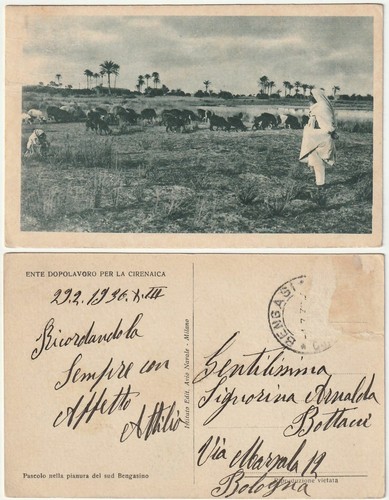 ENTE DOPOLAVORO PER LA CIRENAICA
29.2.1936. XIII
Ricordandola
Sempre con
Affetto
Attilio
Pascolo nella pianura del sud Bengasino
Istituto Edit. Avio Navale - Milano
BENGASI
Gentilissima
Signorina Arnalda
Bottacci
Via Marsala 19
Bologna
Riproduzione vietata